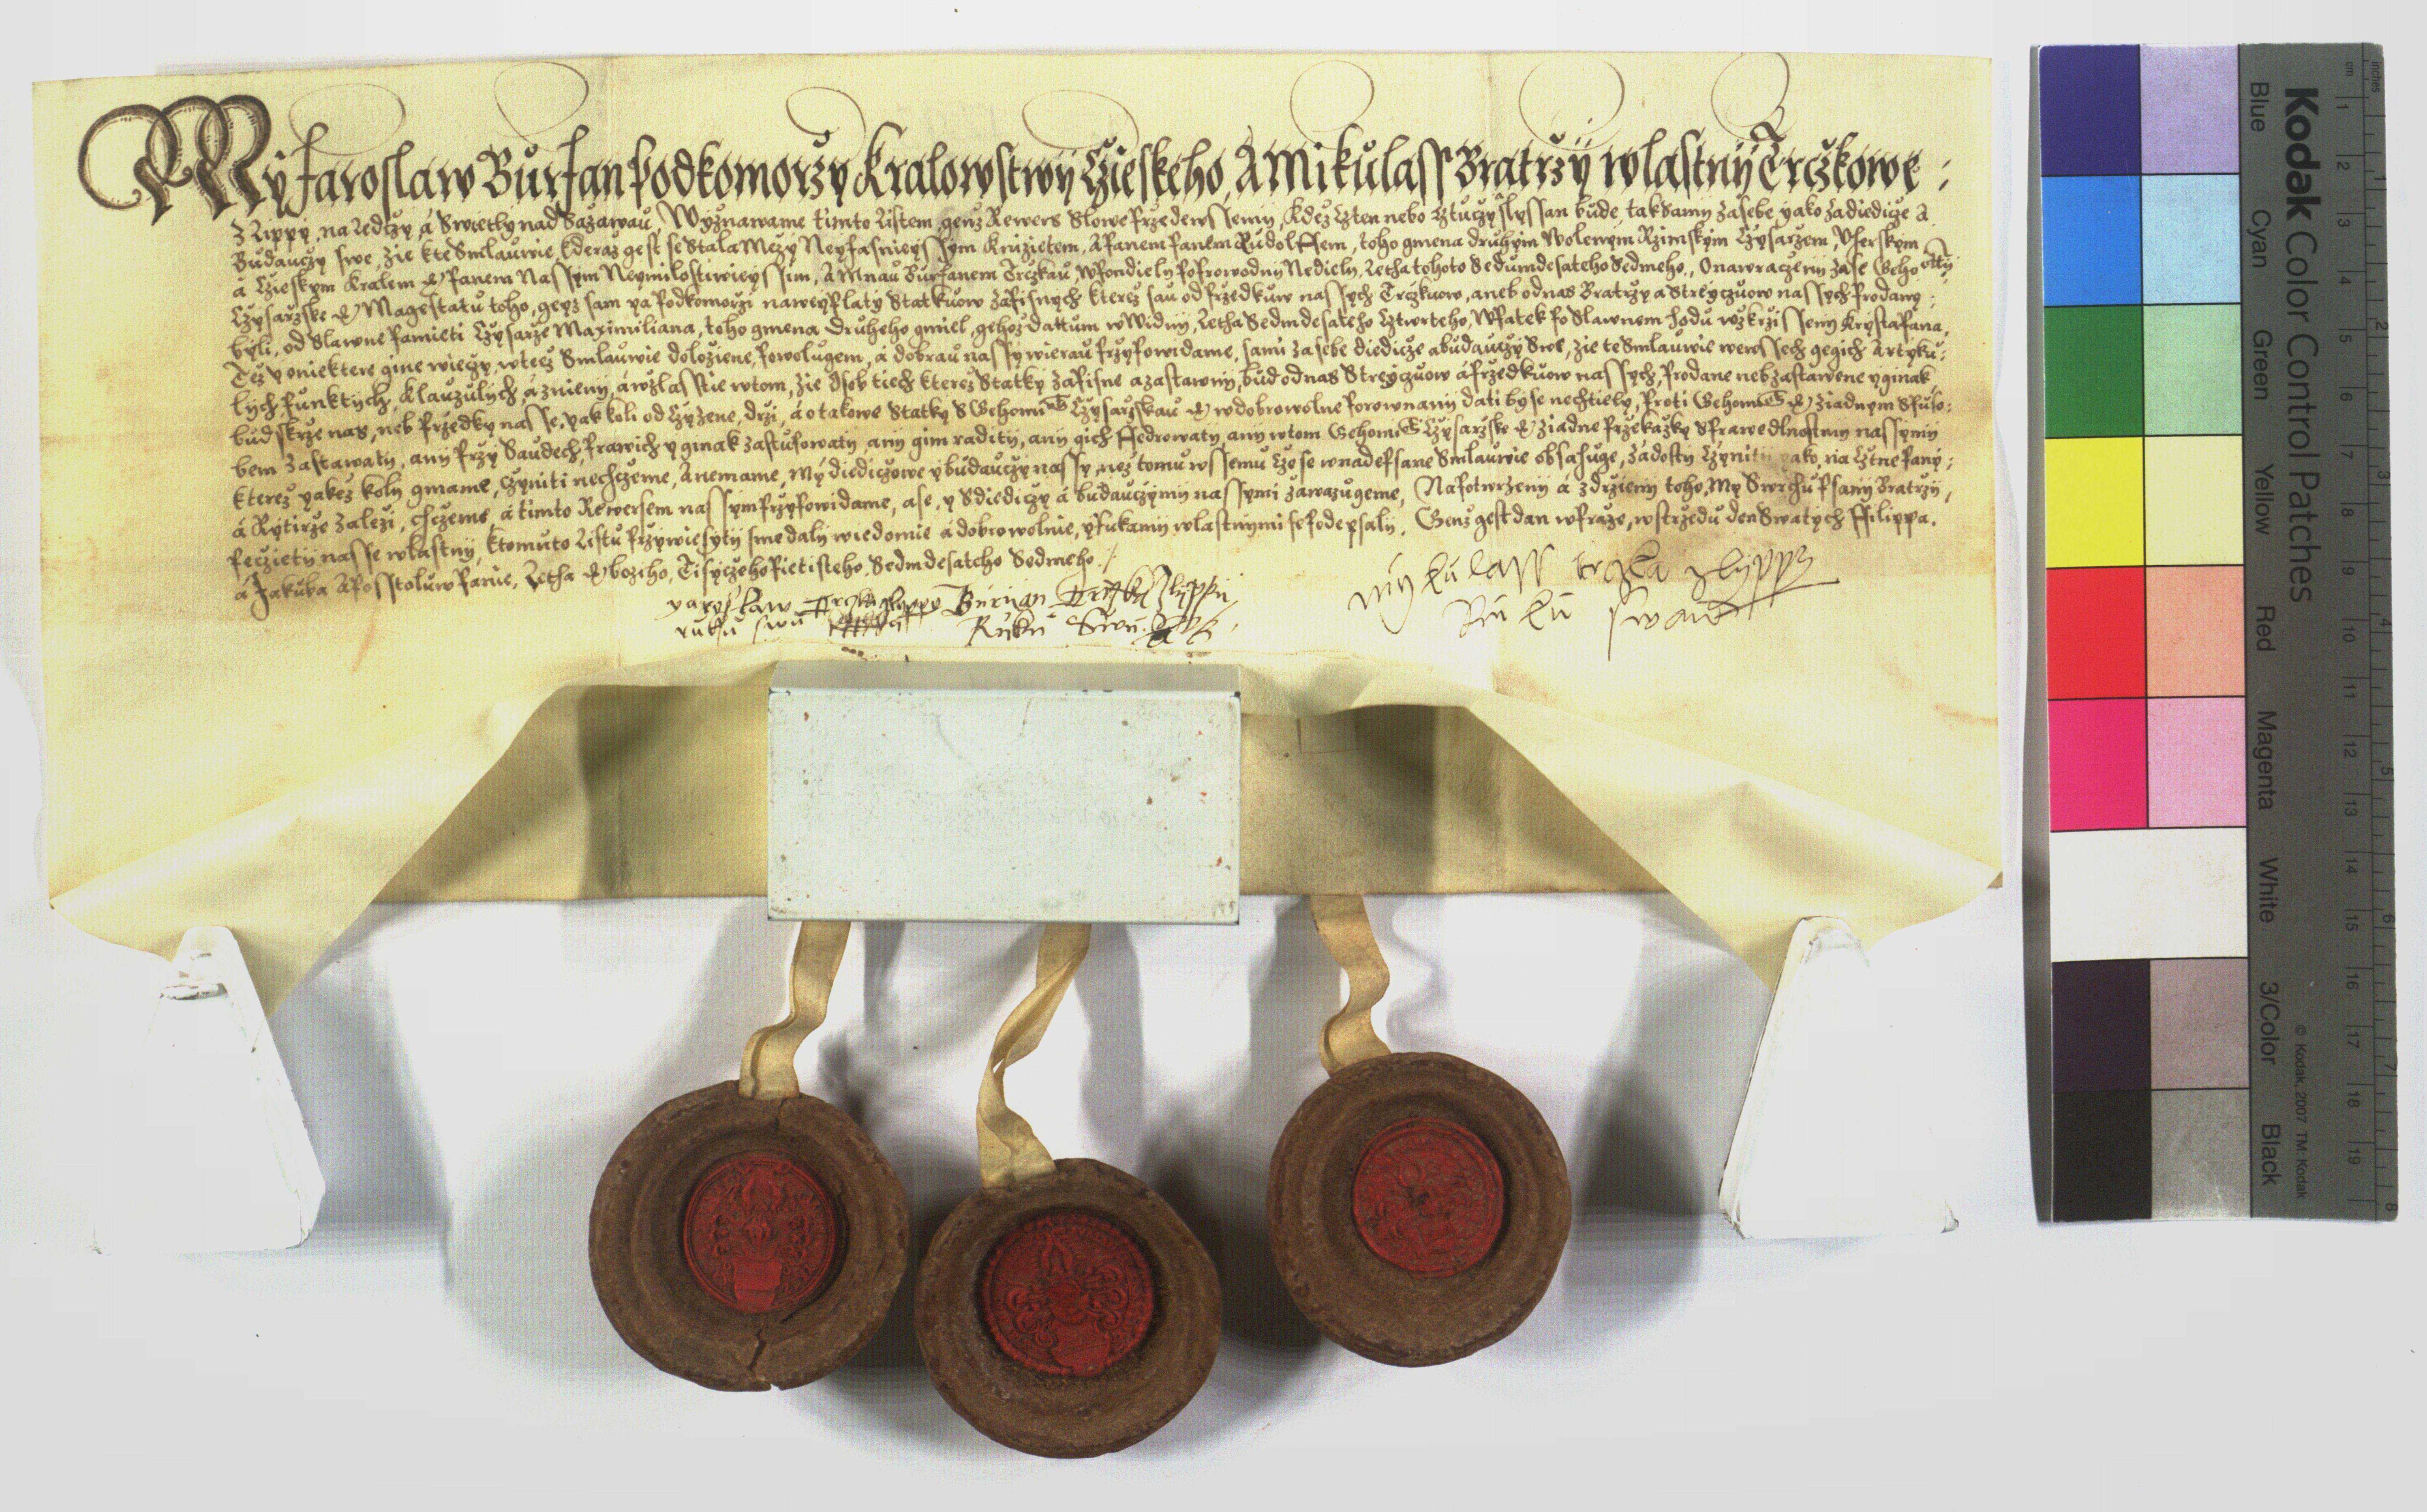 My Jaroslaw Burjan Podkomorzy Kralowstwij Czieskeho, A Mikulass Bratrzy wlastnij Trczkowe:
Z Lippy, na Ledczy, á Swietly nad Sazawau, Wyznawame timto Listem, genz Rewers Slowe przedewssemi, kdez Czten nebo Cztuczy slyssan bude, tak samy za sebe, yako za diedicze a
Budauczy swe, zie kte Smlauwie, kderaz gest se Stala Mezy Neyjasnieyssym knizietem, A Panem Panem Rudolffem, toho gmena druhym Wolenym Rzimskym Czysarzem, Vherskym
á Czieskym Kralem &c Panem Nassym Neymilostiwieyssim, A Mnau Burjanem Trczkau, W Pondieli po Prowodnij Nedieli, Letha tohoto Sedumdesateho Sedmeho, O nawraczenij zase Geho Mti
Czysarzske &c Magestatu toho, geyz sam ya Podkomorzi na weyplaty Statkuow zapisnych kterez sau od przedkuw nassych Trczkuow, aneb od nas Bratrzy a Streyczuow nassych Prodany:
byli, od Slawne Pamieti Czysarze Maximiliana, toho gmena druheho gmiel, gehoz dattum w Widnij, Letha Sedmdesateho Cztwrteho, W Patek po Slawnem hodu wzkrzissenij Krysta Pana,
Tez y oniektere gine wieczy, w tez Smlauwie dolozene, powolugem, á dobrau nassy wierau przypowidame, sami za sebe diedicze a budauczy Swe, zie te Smlauwie wewssech gegich Artyku:
lych, Punktych, Klauzulych, a znieny, á wzlasstie w tom, zie Osob tiech kterez Statky zapisne a zastawny, bud od nas Streyczuow á przedkuow nassych, Prodane neb zastawene y ginak,
bud skrze nas, neb przedky nasse, yak koli od Czyzene, drzi, á o takowe Statky S Gehomti Czysarzskau &c w dobrowolne porownanij dati by se nechtiely, Proti Gehomti &c ziadnym Spuso:
bem zastawati, ani przy Saudech, Prawich y ginak zastupowaty, any gim raditij, any gich Ffedrowaty, any w tom Gehomti Czysarzske &c ziadne przekazky Sprawedlnostmi nassymi
kterez yakez koly gmame, czyniti nechczeme, A nemame, My diediczowe y budauczy nassy, nez tomu wssemu Czo se w nadepsane Smlauwie obsahuge, zadosty Czynitij yako, na Cztne Pany:
á Rytirze zalezi, chczeme á timto Rewersem nassym przypowidame, a se, y S diediczy á budauczymij nassymi zawazugeme, Na potwrzenij á zdrzienij toho, My Swrchu psany Bratrzy,
Peczietij nasse wlastnij, k tomuto Listu przywiesytij sme daly wiedomie á dobrowolnie, y Rukamij wlastnijmi se podepsaly. Genz gest dan w Praze, w strzedu den Swatych Ffilippa,
á Jakuba Aposstoluw Panie, Letha &c bozeho, Tisyczeho Pietisteho Sedmdesateho Sedmeho.
yaroslaw Trczka z lyppy Burian Trczka z lippi, mykulass trczka z lyppy
ruku swu Ruku Swu Ruku swau
Kodak Color Control Patches
Blue Cyan Green Yellow Red Magenta White 3/Color Black
© Kodak, 2007 TM: Kodak
cm 1 2 3 4 5 6 7 8 9 10 11 12 13 14 15 16 17 18 19
inches 1 2 3 4 5 6 7 8